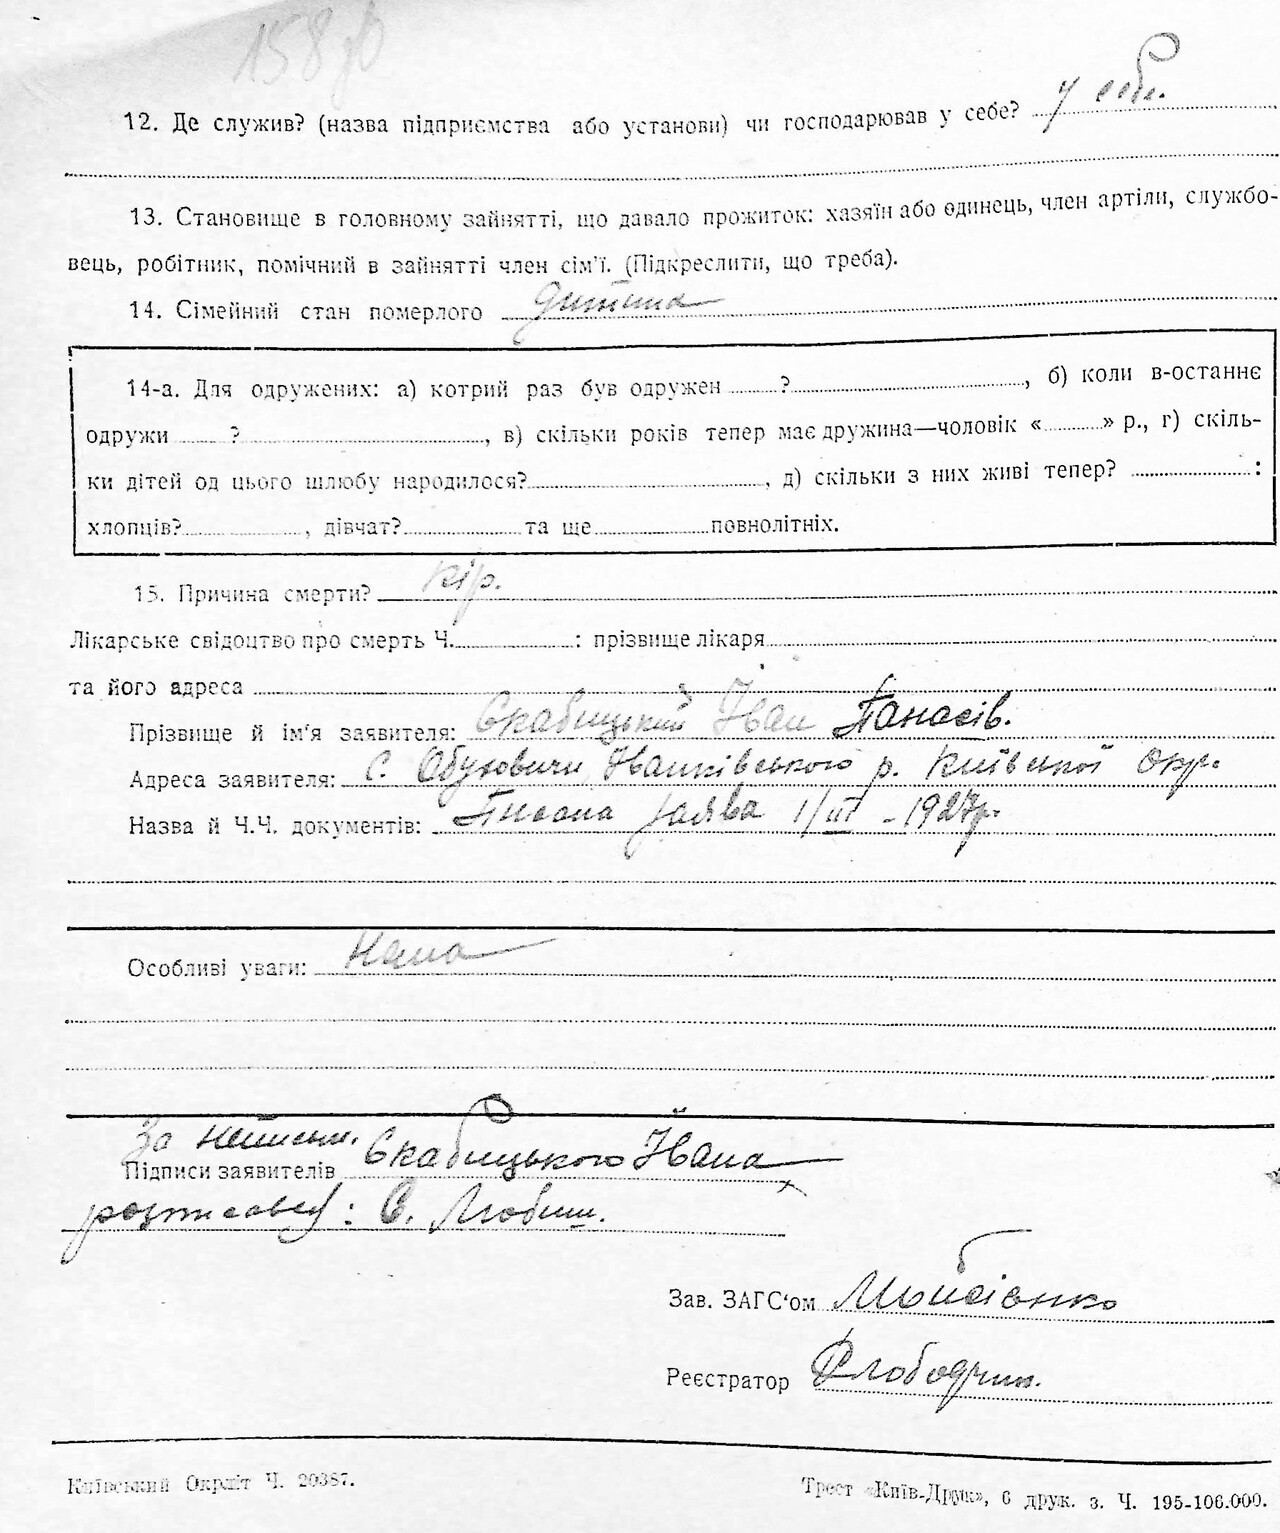 158
12. Де служив? (назва підприємства або установи) чи господарював у себе? у себе.
13. Становище в головному зайнятті, що давало прожиток: хазяїн або одинець, член артіли, службо-
вець, робітник, помічний в зайнятті член сім'ї. (Підкреслити, що треба).
14. Сімейний стан померлого дитина
14-а. Для одружених: а) котрий раз був одружен ? , б) коли в-останнє
одружи ? , в) скільки років тепер має дружина—чоловік « » р., г) скіль-
ки дітей од цього шлюбу народилося? , д) скільки з них живі тепер? :
хлопців? , дівчат? та ще повнолітніх.
15. Причина смерти? кір.
Лікарське свідоцтво про смерть Ч. : прізвище лікаря
та його адреса
Прізвище й ім'я заявителя: Скабицький Іван Панасів.
Адреса заявителя: С. Обуховичи Іванківського р. Київської Окр.
Назва й Ч.Ч. документів: Писана заява 1/III - 1927р.
Особливі уваги: Нема
За неписьм.
Підписи заявителів Скабицького Івана
розписавсь: С. Любим.
Зав. ЗАГС'ом Мойсієнко
Реєстратор
Київський Окрліт Ч. 20387.
Трест «Київ-Друк», 6 друк. з. Ч. 195-106.000.